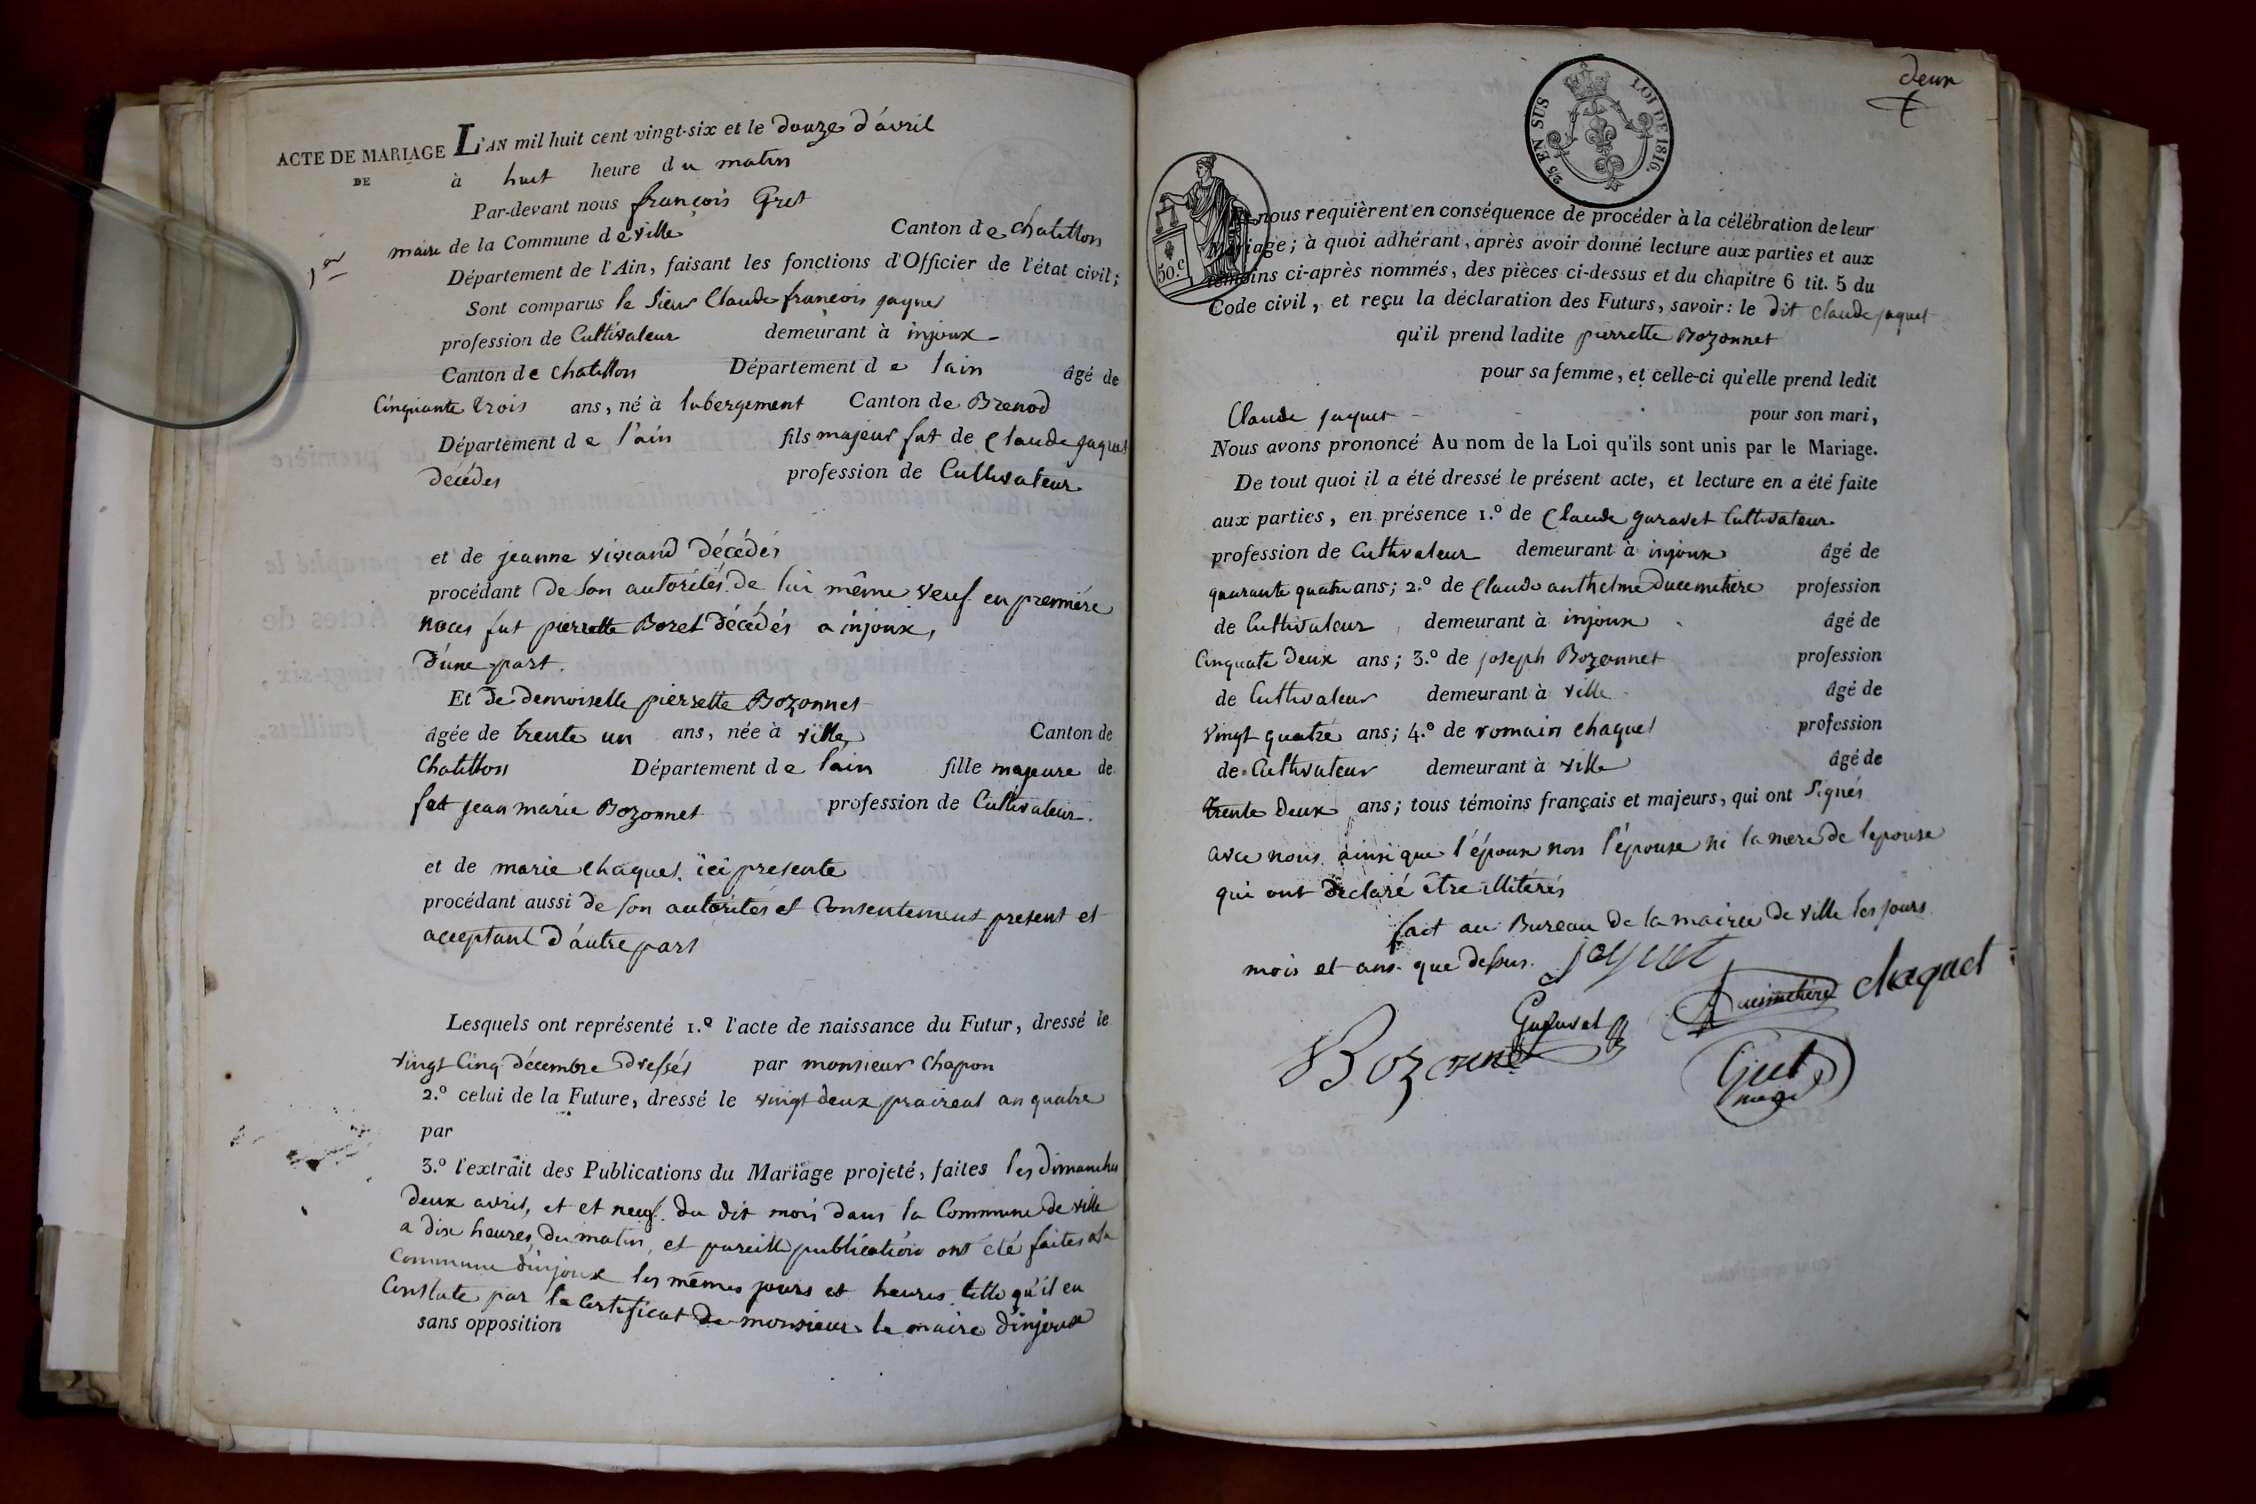 ACTE DE MARIAGE
DE
1er
L'AN mil huit cent vingt-six et le douze d'âvril
à huit heure du matin
Par-devant nous françois Gret
maire de la Commune de ville Canton de Chatillon
Département de l'Ain, faisant les fonctions d'Officier de l'état civil;
Sont comparus le Sieur Claude françois jaquet
profession de Cultivateur demeurant à injoux
Canton de Chatillon Département de lain âgé de
Cinquante trois ans, né à labergement Canton de Brenod
Département de l'ain fils majeur fut de Claude jaquet
décédés profession de Cultivateur
et de jeanne viviand décédés
procédant de son autorités de lui même veuf en premiére
noces fut pierrette Boret décédés a injoux,
d'une part.
Et de demoiselle pierrette Bozonnet
âgée de trente un ans, née à ville Canton de
Chatillon Département de lain fille majeure de
fut jean marie Bozonnet profession de Cultivateur.
et de marie Chaquet ici presente
procédant aussi de son autorités et Consentement present et
acceptant d'autre part
Lesquels ont représenté 1.º l'acte de naissance du Futur, dressé le
vingt Cinq décembre dressés par monsieur Chapon
2.º celui de la Future, dressé le vingt deux praireal an quatre
par
3.º l'extrait des Publications du Mariage projeté, faites les dimanches
deux avril, et et neuf du dit mois dans la Commune de ville
a dix heures du matin, et pareille publication ont été faites a la
Commune d'injoux les mêmes jours et heures telle qu'il en
Constate par le Certificat de monsieur le maire d'injoux
sans opposition
deux
25 EN SUS LOI DE 1816.
50.c
Et nous requièrent en conséquence de procéder à la célébration de leur
Mariage; à quoi adhérant, après avoir donné lecture aux parties et aux
témoins ci-après nommés, des pièces ci-dessus et du chapitre 6 tit. 5 du
Code civil, et reçu la déclaration des Futurs, savoir: le dit Claude jaquet
qu'il prend ladite pierrette Bozonnet
pour sa femme, et celle-ci qu'elle prend ledit
Claude jaquet pour son mari,
Nous avons prononcé Au nom de la Loi qu'ils sont unis par le Mariage.
De tout quoi il a été dressé le présent acte, et lecture en a été faite
aux parties, en présence 1.º de Claude guravet Cultivateur
profession de Cultivateur demeurant à injoux âgé de
quarante quatre ans; 2.º de Claude anthelme Ducimetiere profession
de Cultivateur demeurant à injoux âgé de
Cinquate deux ans; 3.º de joseph Bozonnet profession
de Cultivateur demeurant à ville âgé de
vingt quatre ans; 4.º de romain Chaquet profession
de Cultivateur demeurant à ville âgé de
trente deux ans; tous témoins français et majeurs, qui ont Signés
avec nous ainsi que l'époux non l'épouse ni la mere de lepouse
qui ont declaré être illitérés
fait au Bureau de la mairie de ville les jours
mois et ans que dessus. jaquet
Ducimetiere Chaquet
Guravet
Bozonnet
Gret
maire